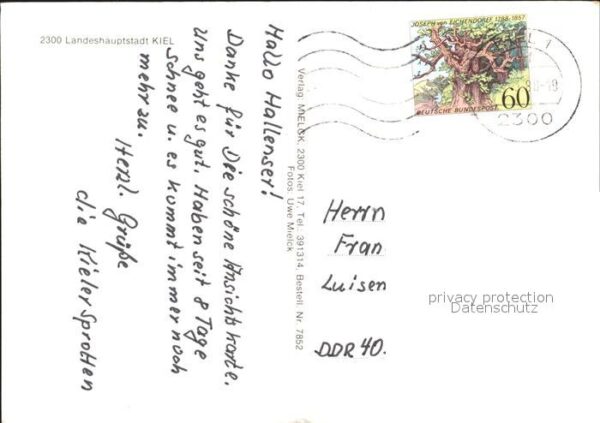 2300 Landeshauptstadt KIEL
Hallo Hallenser!
Danke für Die schöne Ansichtskarte.
Uns geht es gut. Haben seit 8 Tage
Schnee u. es kommt immer noch
mehr zu.
Herzl. Grüße
die Kieler Sprotten
Verlag: MIELCK, 2300 Kiel 17, Tel.: 391314, Bestell. Nr. 7852
Fotos: Uwe Mielck
JOSEPH von EICHENDORFF 1788-1857
60
DEUTSCHE BUNDESPOST
2300
Herrn
Fran
Luisen
DDR 40.
privacy protection
Datenschutz